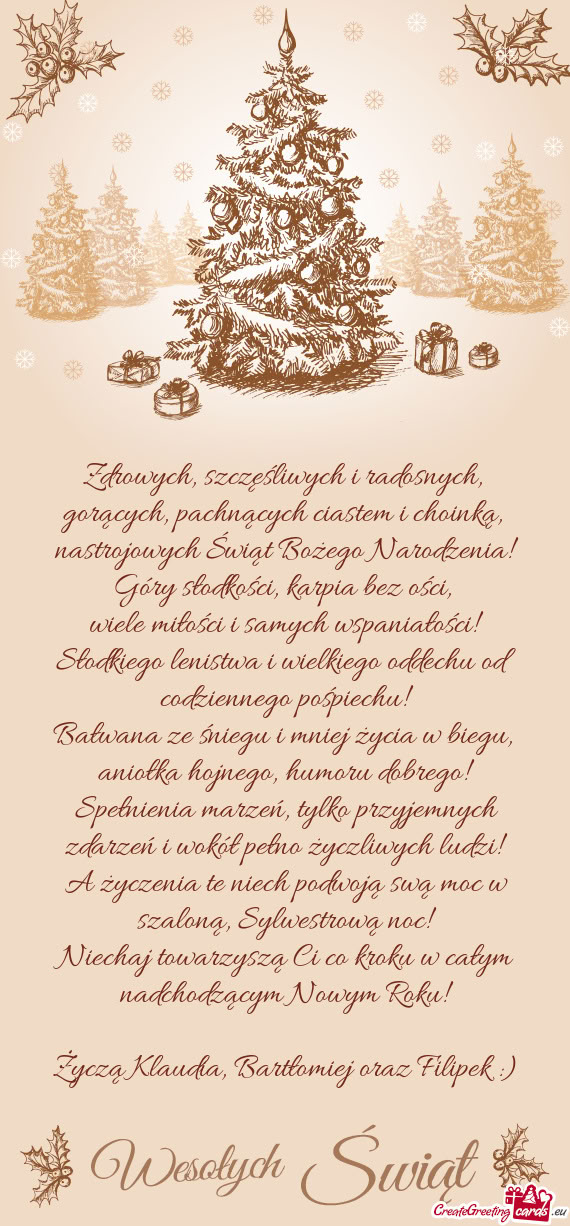 Zdrowych, szczęśliwych i radosnych,
gorących, pachnących ciastem i choinką,
nastrojowych Świąt Bożego Narodzenia!
Góry słodkości, karpia bez ości,
wiele miłości i samych wspaniałości!
Słodkiego lenistwa i wielkiego oddechu od
codziennego pośpiechu!
Bałwana ze śniegu i mniej życia w biegu,
aniołka hojnego, humoru dobrego!
Spełnienia marzeń, tylko przyjemnych
zdarzeń i wokół pełno życzliwych ludzi!
A życzenia te niech podwoją swą moc w
szaloną, Sylwestrową noc!
Niechaj towarzyszą Ci co kroku w całym
nadchodzącym Nowym Roku!
Życzą Klaudia, Bartłomiej oraz Filipek :)
Wesołych Świąt
CreateGreetingcards.eu